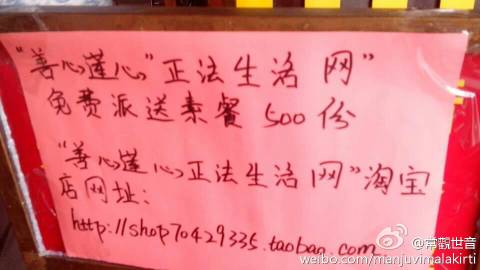 “善心莲心”正法生活网”
免费派送素餐500份
“善心莲心正法生活网”淘宝
店网址：
http://shop70429335.taobao.com
@常觀世音
weibo.com/manjuvimalakirti